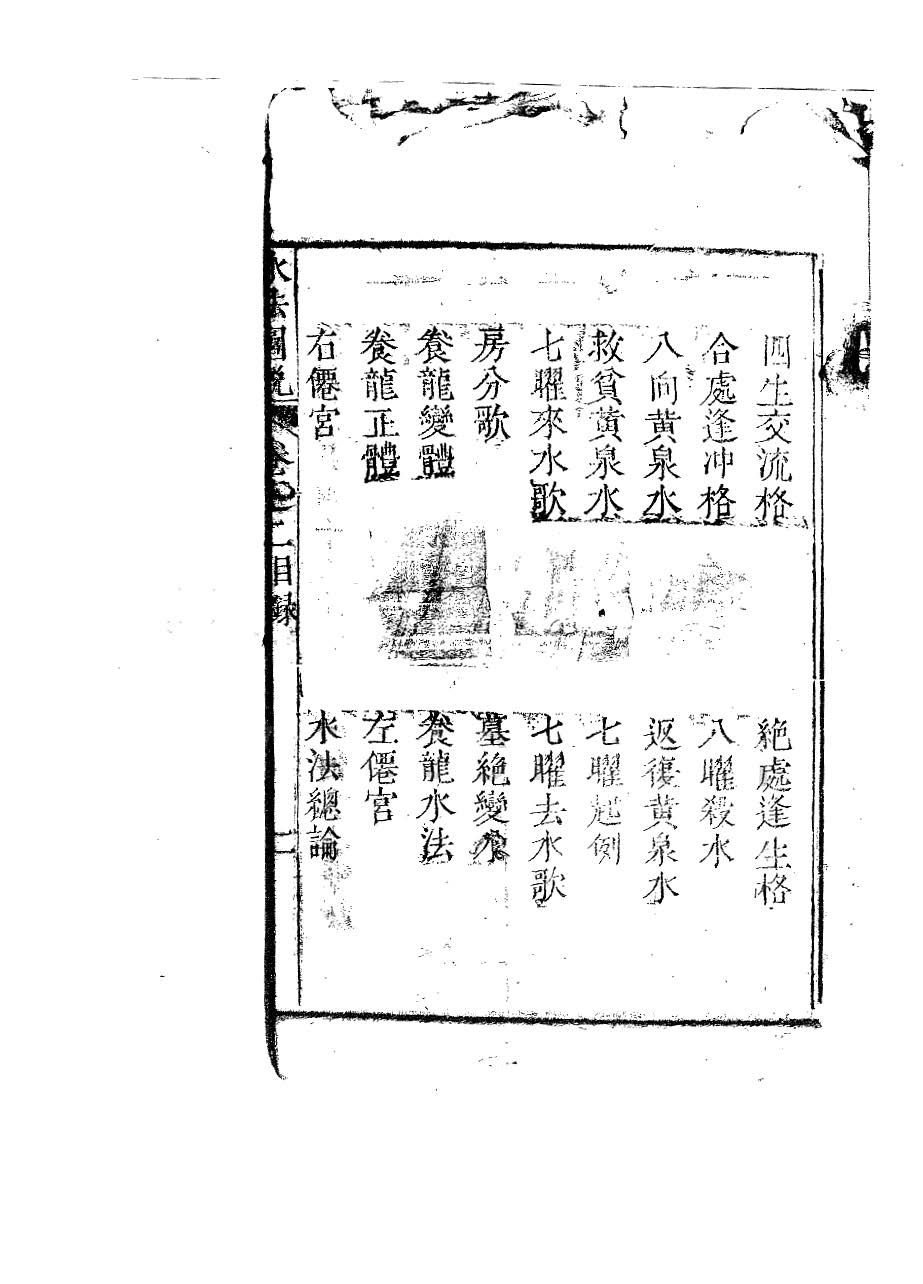 四生交流格　絶處逢生格
合處逢冲格　八曜殺水
八向黃泉水　返復黃泉水
救貧黃泉水　七曜起例
七曜來水歌　七曜去水歌
房分歌　墓絶變水
養龍變體　養龍水法
養龍正體　左僊宮
右僊宮　水法總論
水法圖說　卷之二目錄　二